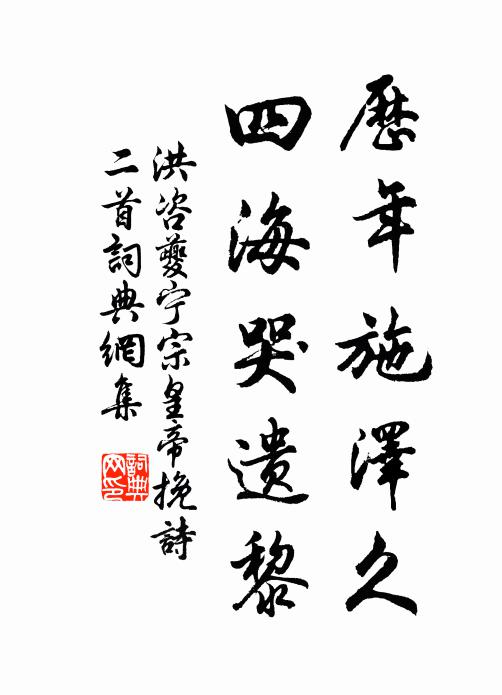 歷年施澤久
四海哭遺黎
洪咨夔宁宗皇帝挽詩
二首詞典網集
詞典
网印